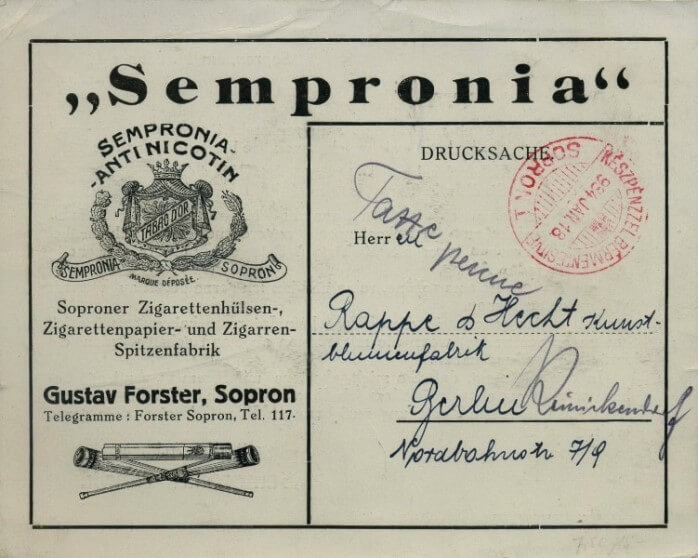 „Sempronia“
SEMPRONIA-
-ANTINICOTIN
TABAC D'OR
SEMPRONIA- SOPRON
MARQUE DÉPOSÉE
Soproner Zigarettenhülsen-,
Zigarettenpapier- und Zigarren-
Spitzenfabrik
Gustav Forster, Sopron
Telegramme: Forster Sopron, Tel. 117.
DRUCKSACHE
KÉSZPÉNZZEL BÉRMENTESITVE
SOPRON 1
934 JAN. 18
Taxe
perçue
Herren
Rappe & Hecht Kunst-
blumenfabrik
Berlin Reinickendorf
Nordbahnstr 7/9